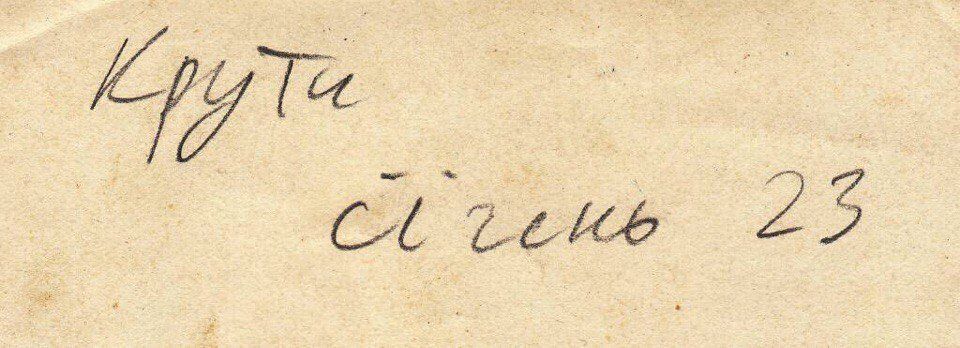 Крути
січень 23